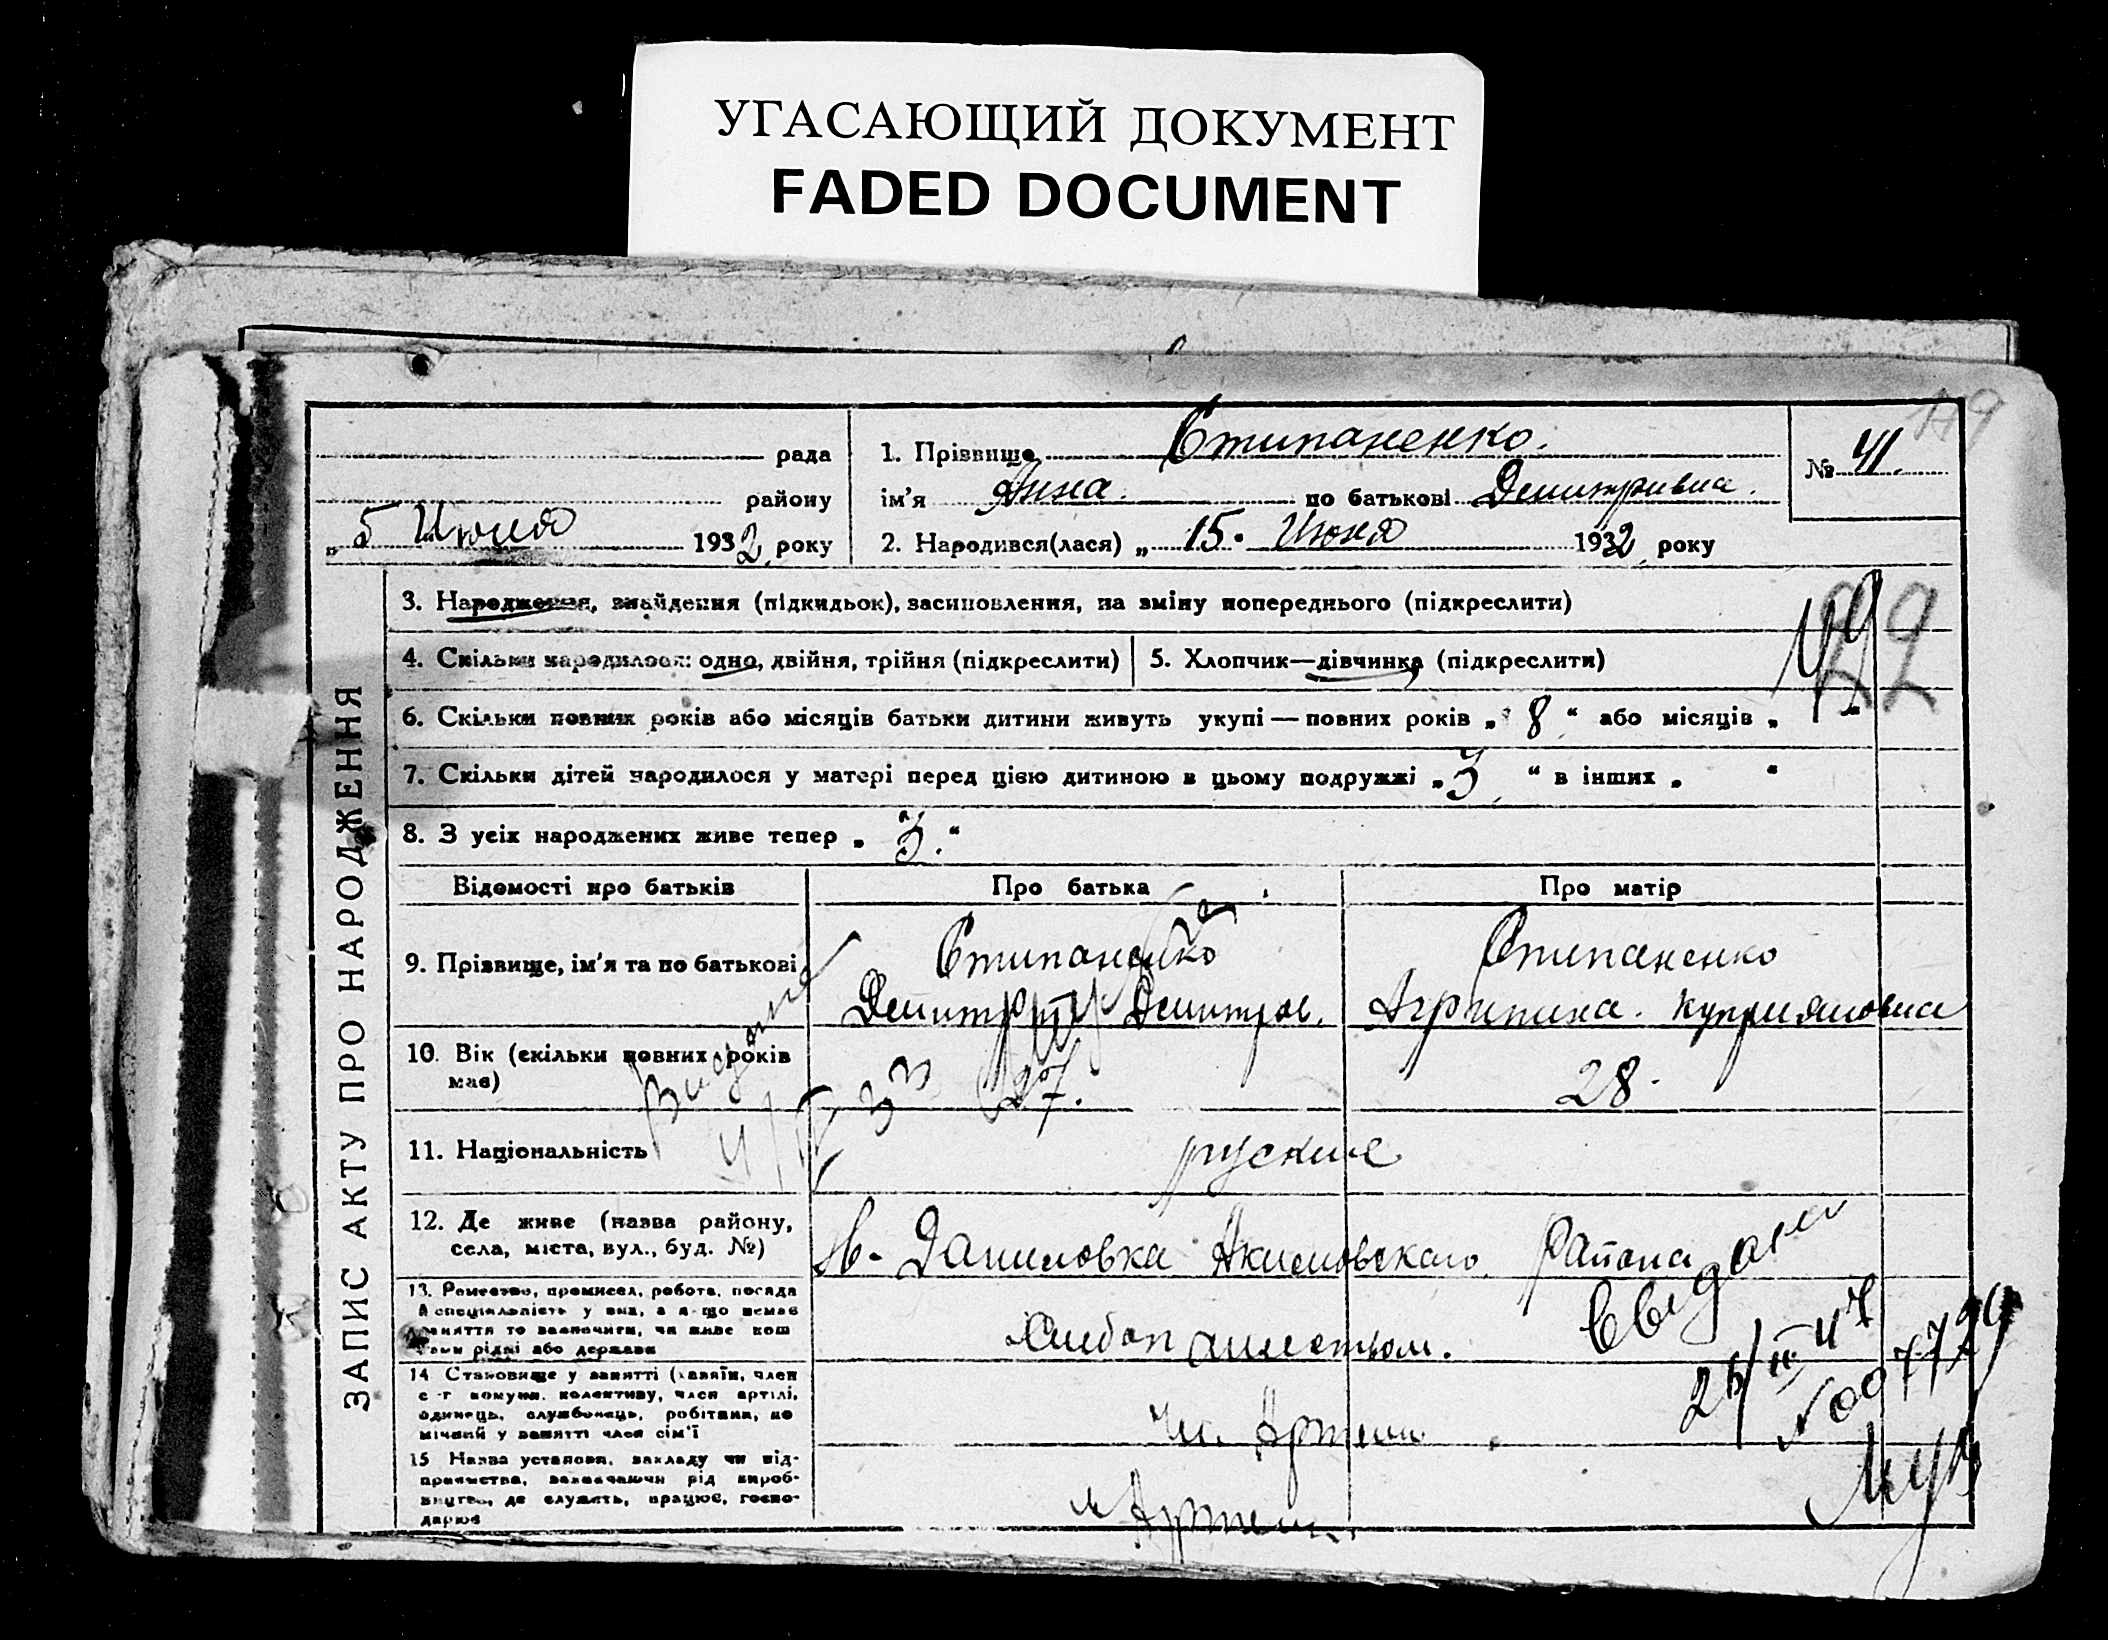 УГАСАЮЩИЙ ДОКУМЕНТ
FADED DOCUMENT
ЗАПИС АКТУ ПРО НАРОДЖЕННЯ
рада
району
„ 5 Июля 1932 року
1. Прізвище Стипаненко.
ім'я Анна. по батькові Демитривна.
2. Народився(лася) „ 15. Июня 1932 року
№ 41.
3. Народження, знайдення (підкидьок), засиновлення, на зміну попереднього (підкреслити)
4. Скільки народилося: одно, двійня, трійня (підкреслити)
5. Хлопчик—дівчинка (підкреслити)
6. Скільки повних років або місяців батьки дитини живуть укупі — повних років „ 8 “ або місяців „ “
7. Скільки дітей народилося у матері перед цією дитиною в цьому подружжі „ 3 “ в інших „ “
8. З усіх народжених живе тепер „ 3. “
Відомості про батьків
Про батька
Про матір
9. Прізвище, ім'я та по батькові
Стипаненко
Демитрий Демитров.
Стипаненко
Агрипина. Куприяновна
10. Вік (скільки повних років
має)
27.
28.
11. Національність
руские
12. Де живе (назва району,
села, міста, вул., буд. №)
Н-Даниловка Акимовскаго Района
13. Ремество, промисел, робота, посада
й спеціяльність у них, а якщо немає
заняття то зазначити, чи живе кош
тами рідні або держави
Хлебопашеством.
14. Становище у занятті (хазяїн, член
с-г комуни, колективу, член артілі,
одинець, службовець, робітник, по
мічний у занятті член сім'ї
Чл. Артели
15. Назва установи, закладу чи під-
приємства, зазначаючи рід вироб-
ництва, де служить, працює, госпо-
дарює
Артели.
№007729